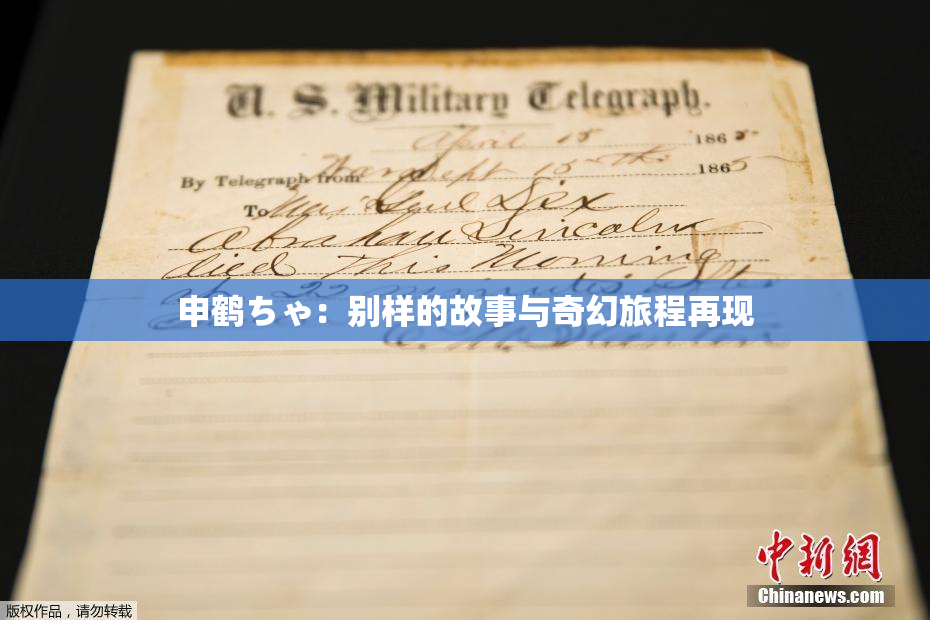 U. S. Military Telegraph.
April 15 1865
By Telegraph from War Dept 15th 1865
To Maj Genl Dix
Abraham Lincoln
died This Morning
at 22 minutes after
申鹤ちゃ：别样的故事与奇幻旅程再现
E. M. Stanton
中新網
Chinanews.com
版权作品，请勿转载